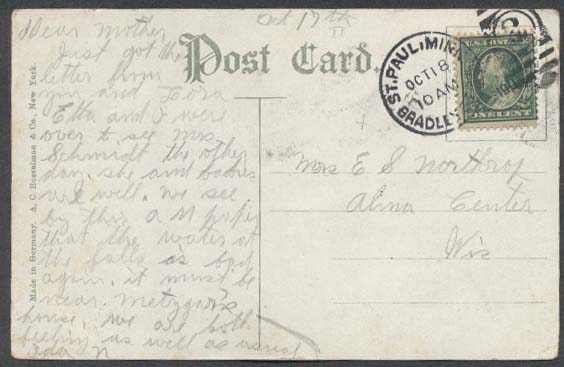 Oct 17th
11
Dear Mother
Just got the
letter from
you and Dora
Etta and I were
over to see Mrs
Schmidt the other
day. she and babies
are well. we see
by this A M paper
that the water at
the falls is bad
again. it must be
near Metzgar's
house. we are both
feeling as well as usual
Post Card.
Made in Germany. A. C. Bosselman & Co., New York.
ST. PAUL, MINN.
OCT 18
10 AM
BRADLEY
U.S. POSTAGE
ONE CENT
Mrs E S Northrop
Alma Center
Wis